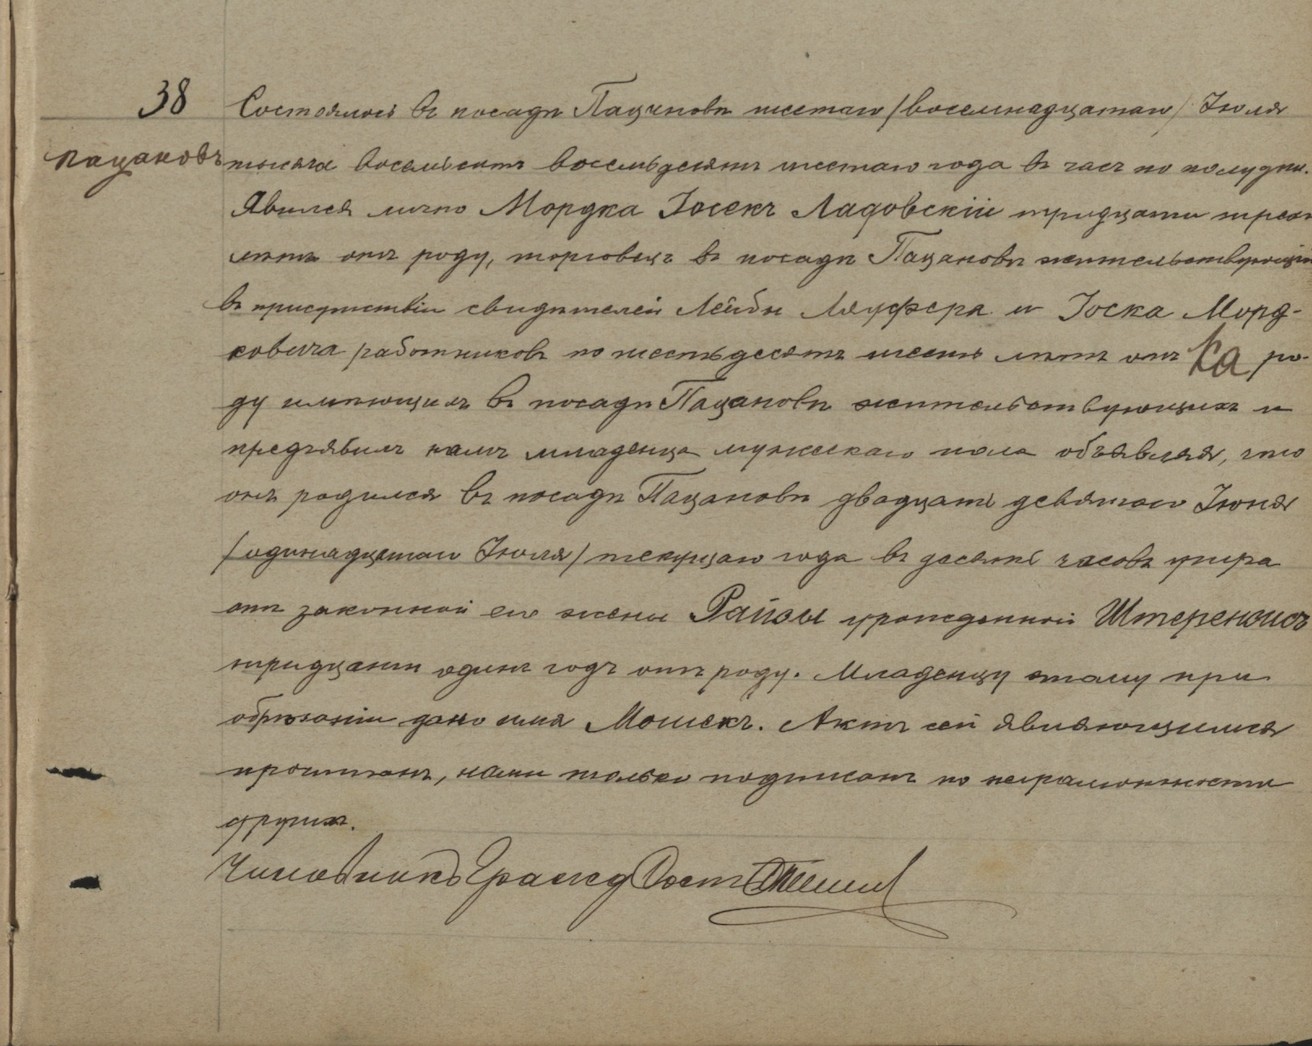 38
Пацановъ
Состоялось въ посадѣ Пацановѣ шестаго /восемнадцатаго/ Іюля
тысяча восемьсотъ восемьдесятъ шестаго года въ часъ по полудни.
Явился лично Мордка Іосекъ Ладовскій тридцати трехъ
лѣтъ отъ роду, торговецъ въ посадѣ Пацановѣ жительствующій
въ присутствіи свидѣтелей Лейбы и Іоска Морд-
ковича работниковъ по шестьдесятъ шесть лѣтъ отъ ка ро-
ду имѣющихъ въ посадѣ Пацановѣ жительствующихъ и
предъявилъ намъ младенца мужскаго пола объявляя, что
онъ родился въ посадѣ Пацановѣ двадцать девятаго Іюня
/одинадцатаго Іюля/ текущаго года въ десять часовъ утра
отъ законной его жены Райзы урожденной
тридцати одинъ годъ отъ роду. Младенцу этому при
обрѣзаніи дано имя Мошекъ. Актъ сей являющимся
прочитанъ, нами только подписанъ по неграмотности
другихъ.
Чиновникъ Гражд Сост